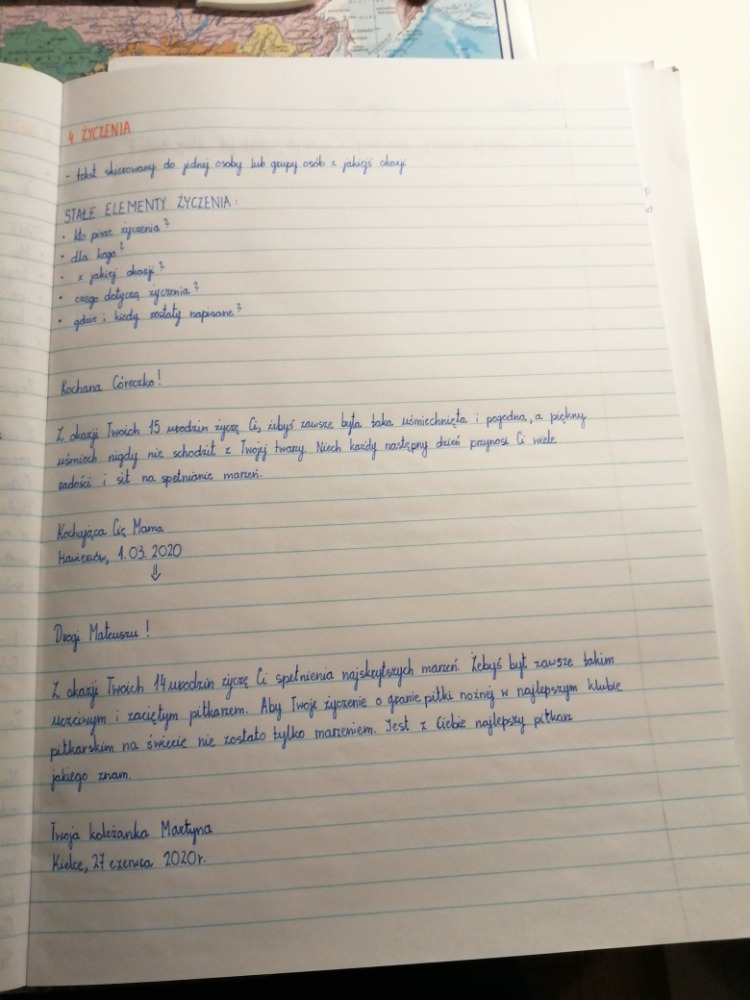 4 ŻYCZENIA
- tekst skierowany do jednej osoby lub grupy osób z jakiejś okazji
STAŁE ELEMENTY ŻYCZENIA:
• kto pisze życzenia?
• dla kogo?
• z jakiej okazji?
• czego dotyczą życzenia?
• gdzie i kiedy zostały napisane?
Kochana Córeczko!
Z okazji Twoich 15 urodzin życzę Ci, żebyś zawsze była taka uśmiechnięta i pogodna, a piękny
uśmiech nigdy nie schodził z Twojej twarzy. Niech każdy następny dzień przynosi Ci wiele
radości i sił na spełnianie marzeń.
Kochająca Cię Mama
1.03.2020
⇓
Drogi Mateuszu!
Z okazji Twoich 14 urodzin życzę Ci spełnienia najskrytszych marzeń. Żebyś był zawsze takim
uczciwym i zaciętym piłkarzem. Aby Twoje życzenie o granie piłki nożnej w najlepszym klubie
piłkarskim na świecie nie zostało tylko marzeniem. Jest z Ciebie najlepszy piłkarz
jakiego znam.
Twoja koleżanka Martyna
Kielce, 27 czerwca 2020r.